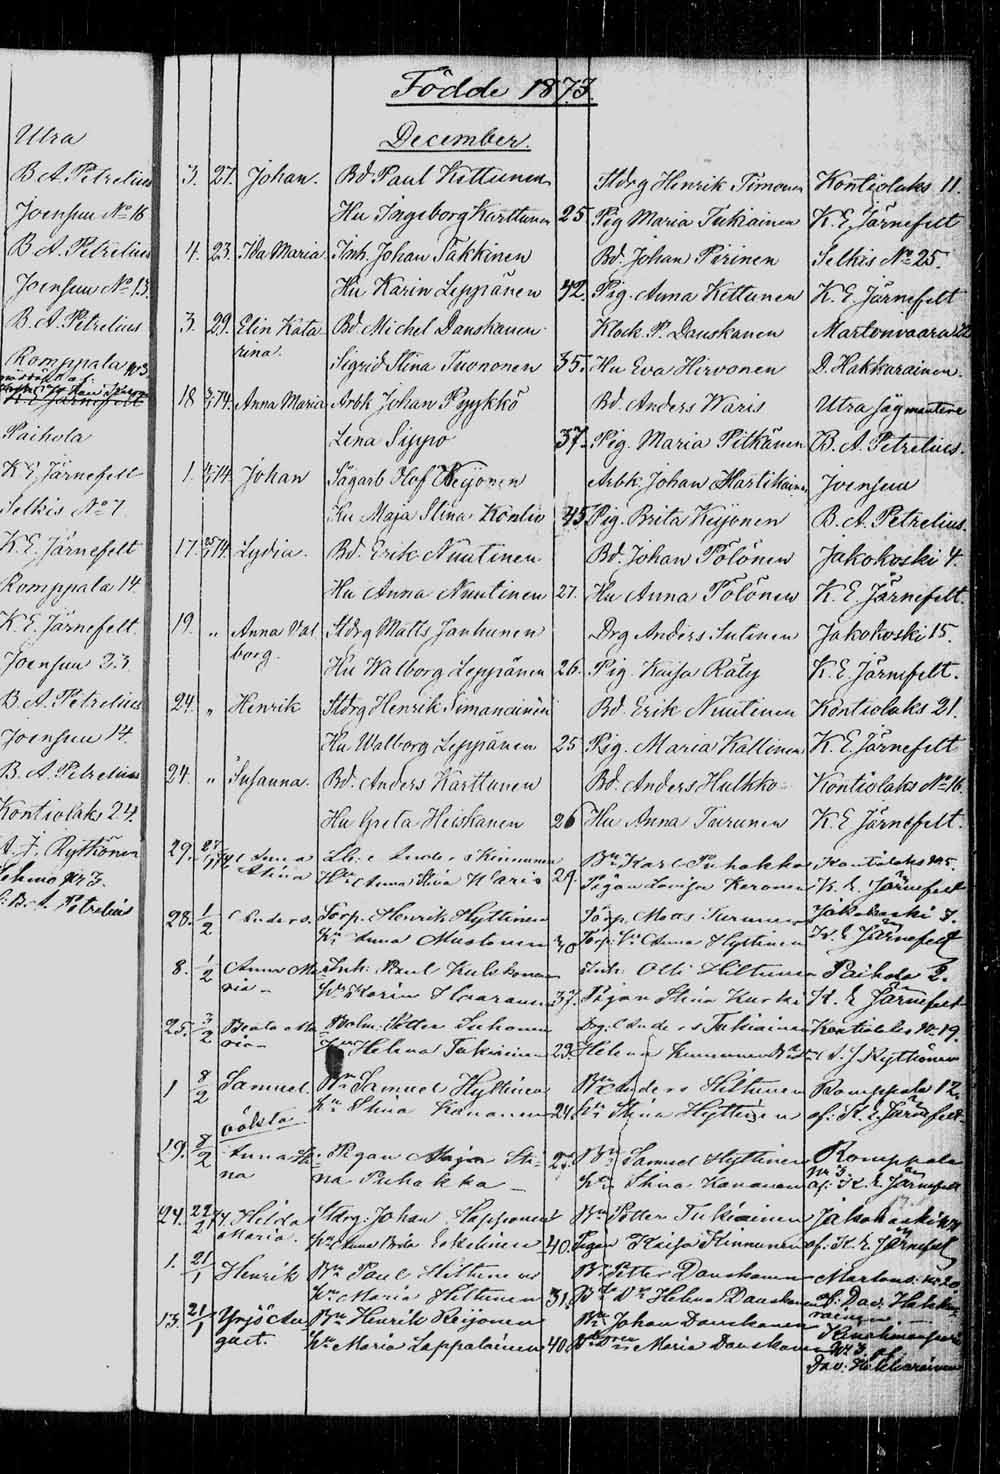 Födde 1873.
December.
Utra
B. A. Petrelius
Joensuu No 16
B. A. Petrelius
Joensuu No 13.
B. A. Petrelius
Romppala No 3
K. E. Järnefelt
Paihola
K. E. Järnefelt
Selkis No 7
K. E. Järnefelt
Romppala 14
K. E. Järnefelt
Joensuu 33
B. A. Petrelius
Joensuu 14.
B. A. Petrelius
Kontiolaks 24
A. J. Rytkönen
No 3.
B. A. Petrelius
3. 27. Johan. Bd. Paul Kettunen Stdrg Henrik Timonen Kontiolaks 11.
Hu Ingeborg Karttunen 25 Pig Maria Tukiainen K. E. Järnefelt
4. 23. Ida Maria Inh. Johan Takkinen Bd. Johan Pirinen Selkis No 25.
Hu Karin Leppänen 42. Pig. Anna Kettunen K. E. Järnefelt
3. 29. Elin Kata Bd. Michel Danskanen Klock. P. Danskanen Martonvaara
rina. Sigrid Stina Tuononen 35. Hu Eva Hirvonen D. Hakkarainen.
18 74. Anna Maria Arbk Johan Pyykkö Bd. Anders Waris Utra såg
Lena Sippo 37. Pig. Maria Pitkänen B. A. Petrelius.
1. 74. Johan Sågarb Olof Keijonen Arbk. Johan Martikainen Joensuu
Hu Maja Stina Kontio 45 Pig. Brita Keijonen B. A. Petrelius.
17. 74. Lydia. Bd. Erik Nuutinen Bd. Johan Pölönen Jakokoski 4.
Hu Anna Nuutinen 27. Hu Anna Pölönen K. E. Järnefelt.
19. " Anna Val Stdrg Matts Janhunen Drg Anders Sutinen Jakokoski 15.
borg. Hu Walborg Leppänen 26. Pig. Kaisa Räty K. E. Järnefelt.
24. " Henrik Stdrg Henrik Simanainen Bd. Erik Nuutinen Kontiolaks 21.
Hu Walborg Leppänen 25 Pig. Maria Kallinen K. E. Järnefelt
24. " Susanna. Bd. Anders Karttunen Bd. Anders Hulkko Kontiolaks No 16.
Hu Greta Heiskanen 26 Hu Anna Turunen K. E. Järnefelt.
29. 27/1 74 Anna Anders Kinnunen Bn Karl Puhakka Kontiolaks No 5.
Stina Hn Anna Stina Waris 29. Pigan Lovisa Keronen K. E. Järnefelt
28. 1/2 Anders. Torp. Henrik Hyttinen Torp. Matts Jakokoski 7.
Hn Anna Mustonen 30 Torp. Hn Anna Hyttinen K. E. Järnefelt
8. 1/2 Anna Ma- Inh. Paul Inh. Olli Hiltunen Paihola 2.
ria - Hn Karin 37. Pigan Stina Kurki K. E. Järnefelt
25. 3/2 Beata Ma- Petter Drg. Anders Tukiainen Kontiolaks No 19.
ria - Hn Helena Tukiainen 29. Helena A. J. Rytkönen
1 8/2 Samuel Bn Samuel Hyttinen Bn Anders Hiltunen Romppala 12.
Hn Stina Kananen 24. Hn Stina Hyttinen af: K. E. Järnefelt.
oäkta
19. 8/2 Anna Sti- Pigan Maja Sti- 27. Bn Samuel Hyttinen Romppala
na na Puhakka - Hn Stina Kananen Nr 3. af: K. E. Järnefelt
24. 22/2 74 Hilda Stdrg. Johan Happonen Bn Petter Tukiainen Jakokoski No 14
Maria. Hn Anna Brita Eskelinen 40. Pigan Kaisa Kinnunen af: K. E. Järnefelt
1. 21/1 Henrik Bn Paul Hiltunen Bn Petter Danskanen Martons. No 20
Hn Maria Hiltunen 31. Hn Helena Danskanen af: Dav. Hakka-
rainen
13. 21/1 Yrjö Au- Bn Henrik Keijonen Bn Johan Danskanen
gust. Hn Maria Lappalainen 40. Maria Danskanen Nr 3. af
Dav: Hakkarainen